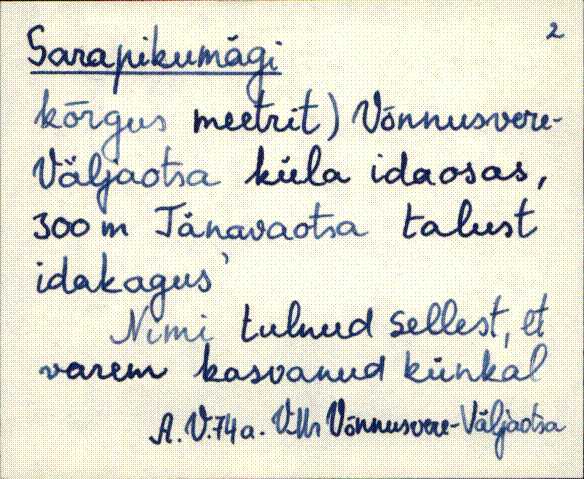 2
Sarapikumägi
kõrgus meetrit) Võnnusvere-
Väljaotsa küla idaosas,
300 m Tänavaotsa talust
idakagus
Nimi tulnud sellest, et
varem kasvanud künkal
A. V. 74 a. Võnnusvere-Väljaotsa